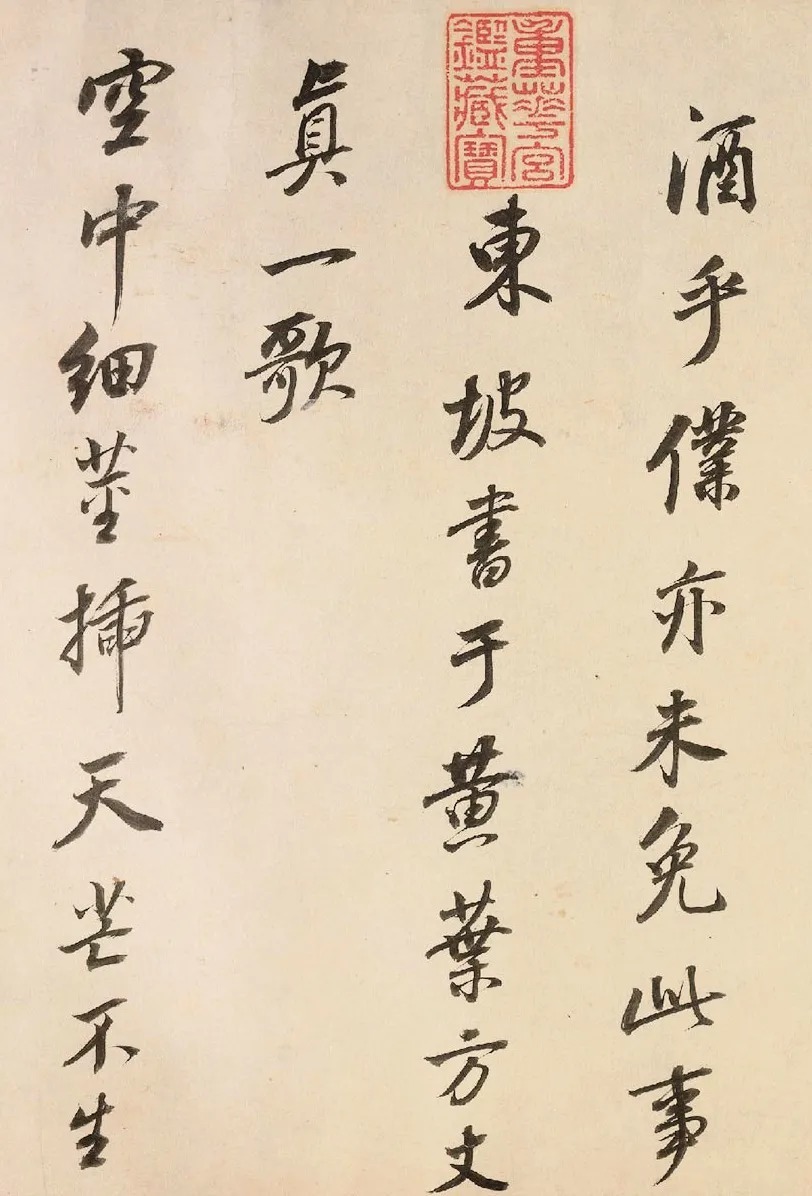 酒乎僕亦未免此事
重華宮
鑑藏寶
東坡書于黄葉方丈
眞一歌
空中細莖插天芒不生